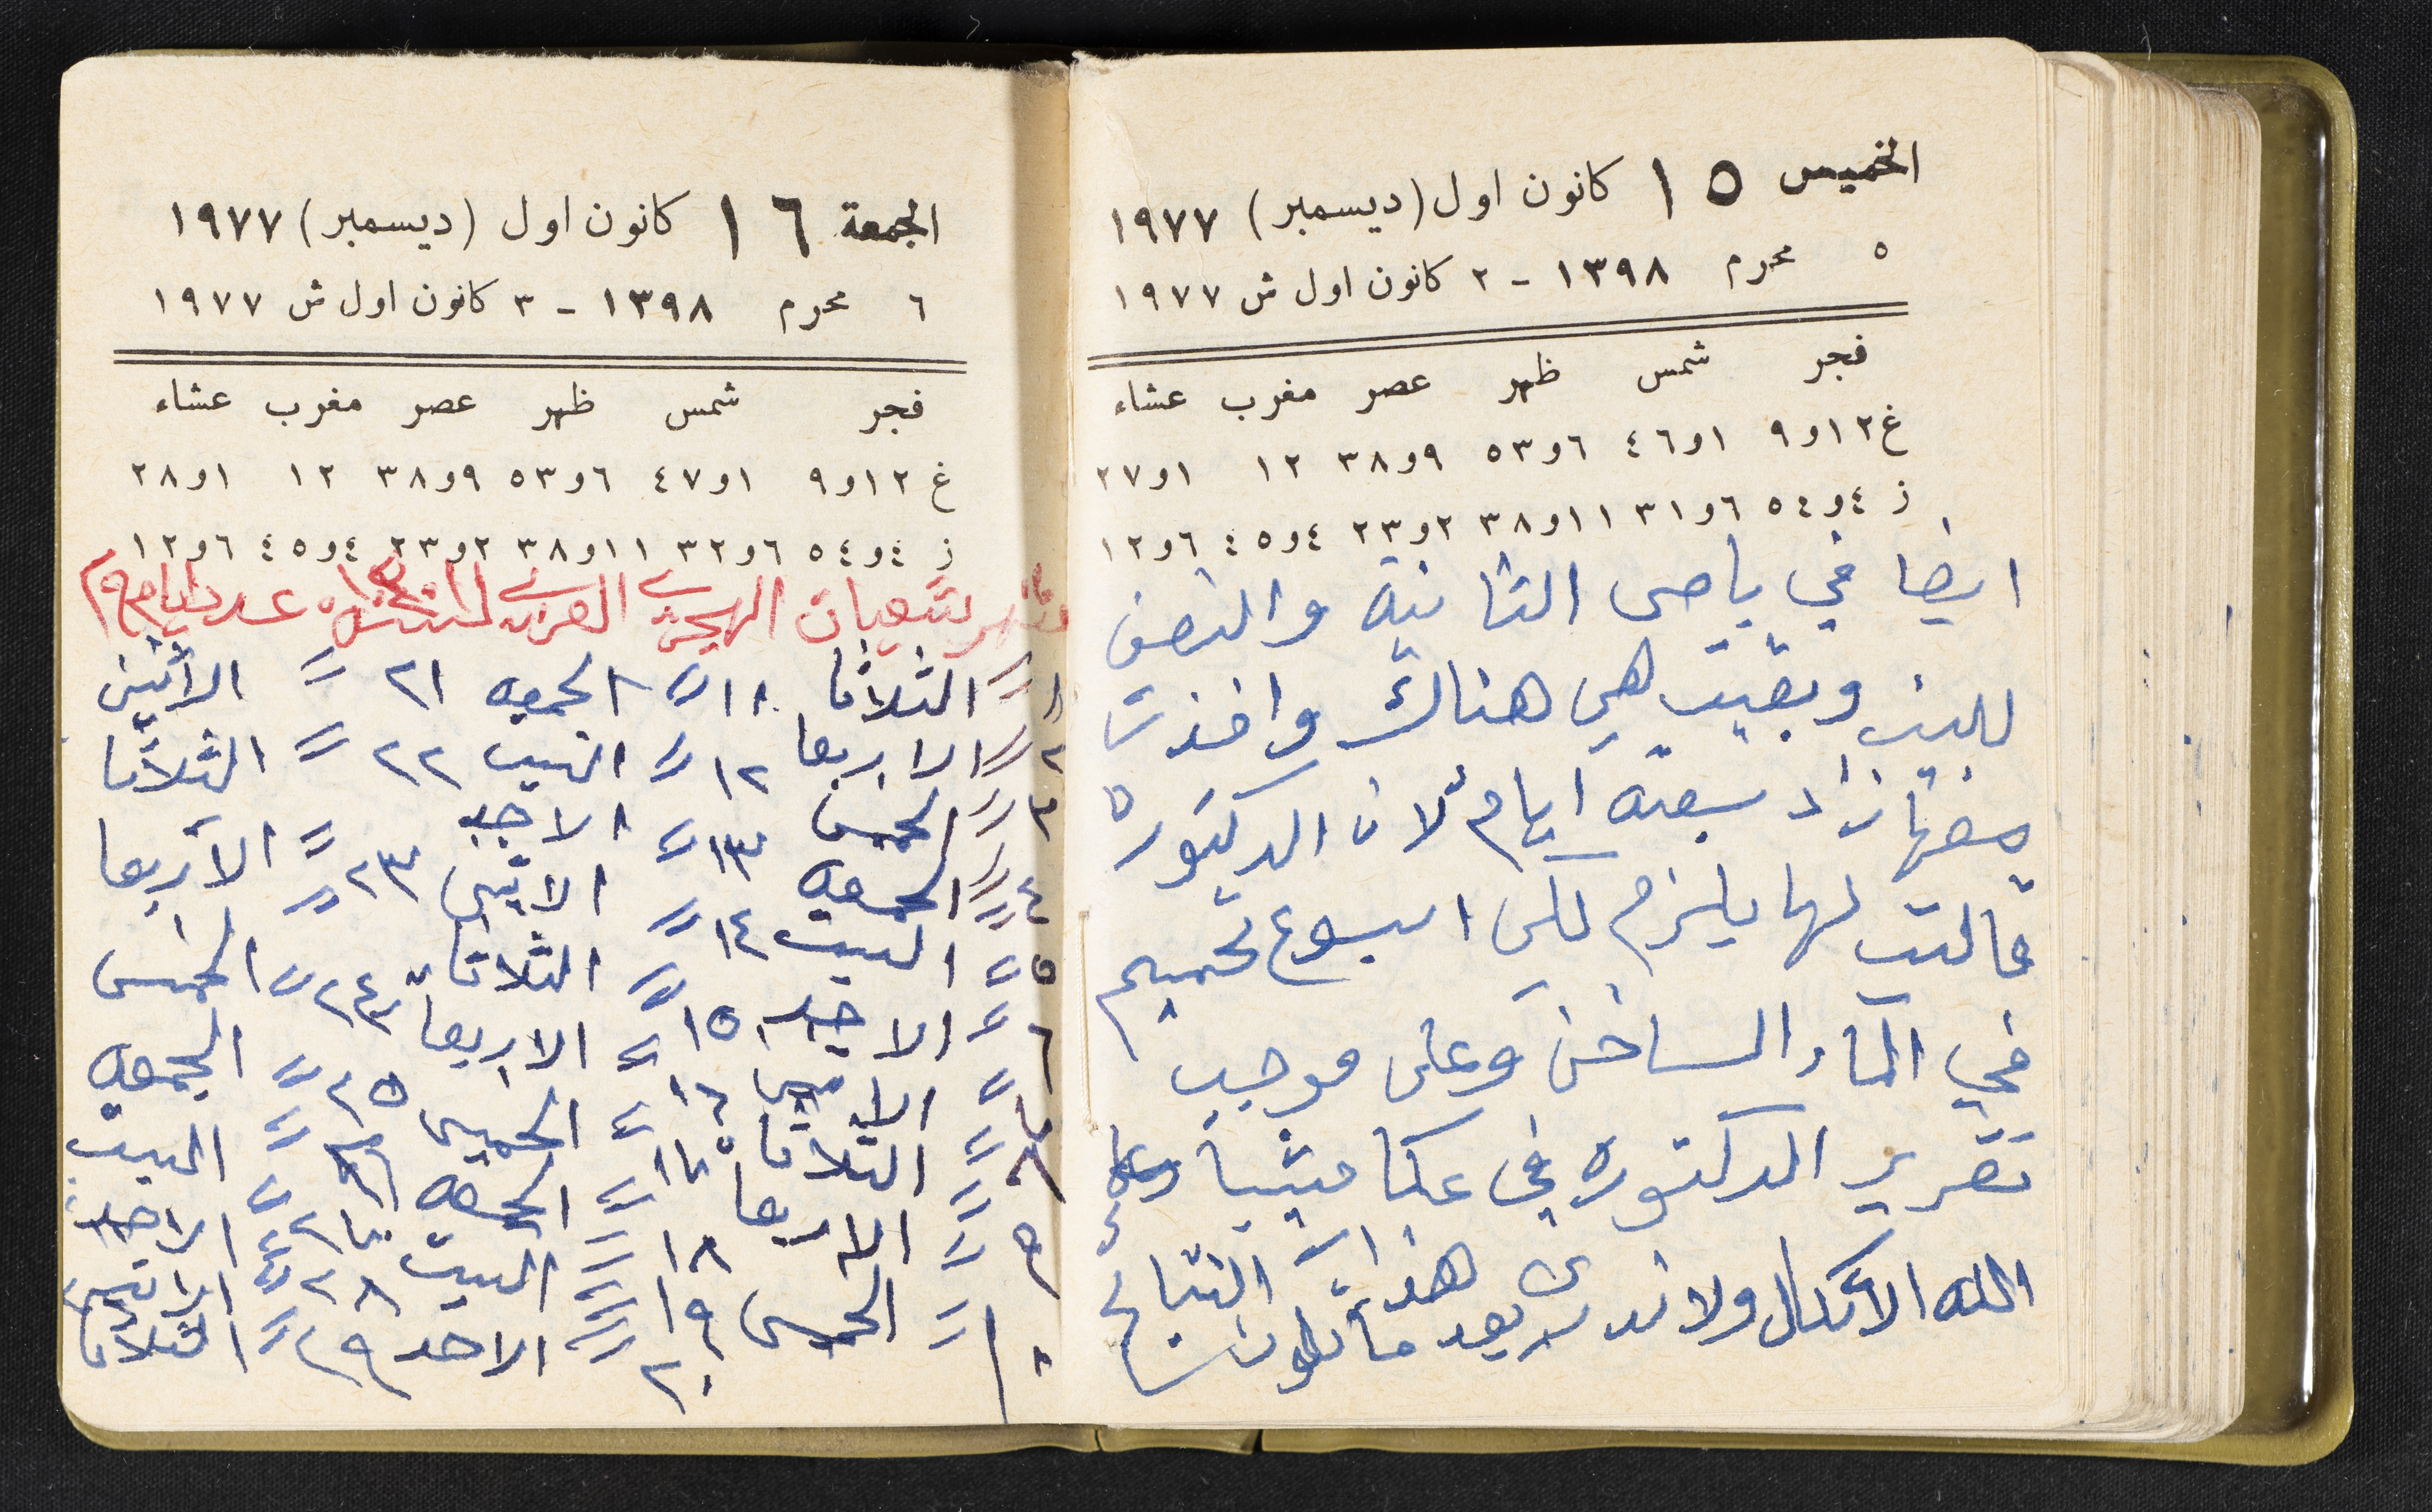 الخميس ١٥ كانون اول (ديسمبر) ١٩٧٧
٥ محرم ١٣٩٨ - ٢ كانون اول ش ١٩٧٧
فجر شمس ظهر عصر مغرب عشاء
غ ١٢و٩ ١و٤٦ ٦و٥٣ ٩و٣٨ ١٢ ١و٢٧
ز ٤و٥٤ ٦و٣١ ١١و٣٨ ٢و٢٣ ٤و٤٥ ٦و١٢
ايضا في باص الثانية والنصف
للبيت وبقيت هي هناك واخذت
معها زاد سبعة ايام لان الدكتوره
قالت لها يلزم لكي اسبوع تحميم
في الماء الساخن وعلى موجب
تقرير الدكتوره في عكا مشينا وعلى
الله الاتكال ولا ندري بعد هذا
ما تكون النتائج
الجمعة ١٦ كانون اول (ديسمبر) ١٩٧٧
٦ محرم ١٣٩٨ - ٣ كانون اول ش ١٩٧٧
فجر شمس ظهر عصر مغرب عشاء
غ ١٢و٩ ١و٤٧ ٦و٥٣ ٩و٣٨ ١٢ ١و٢٨
ز ٤و٥٤ ٦و٣٢ ١١و٣٨ ٢و٢٣ ٤و٤٥ ٦و١٢
شهر شعبان الهجري العربي لسنة عدد ايام
١〃 الثلاثا ١١〃 الجمعه ٢١〃 الاثنين
٢〃 الاربعا ١٢〃 السبت ٢٢〃 الثلاثا
٣〃 الخميس ١٣〃 الاحد ٢٣〃 الاربعا
٤〃 الجمعه ١٤〃 الاثنين ٢٤〃 الخميس
٥〃 السبت ١٥〃 الثلاثا ٢٥〃 الجمعه
٦〃 الاحد ١٦〃 الاربعا 〃 السبت
٧〃 الاثنين ١٧〃 الخميس ٢٧〃 الاحد
٨〃 الثلاثا ١٨〃 الجمعه ٢٨〃 الاثنين
٩〃 الاربعا ١٩〃 السبت ٢٩〃 الثلاثا
١٠〃 الخميس ٢٠〃 الاحد